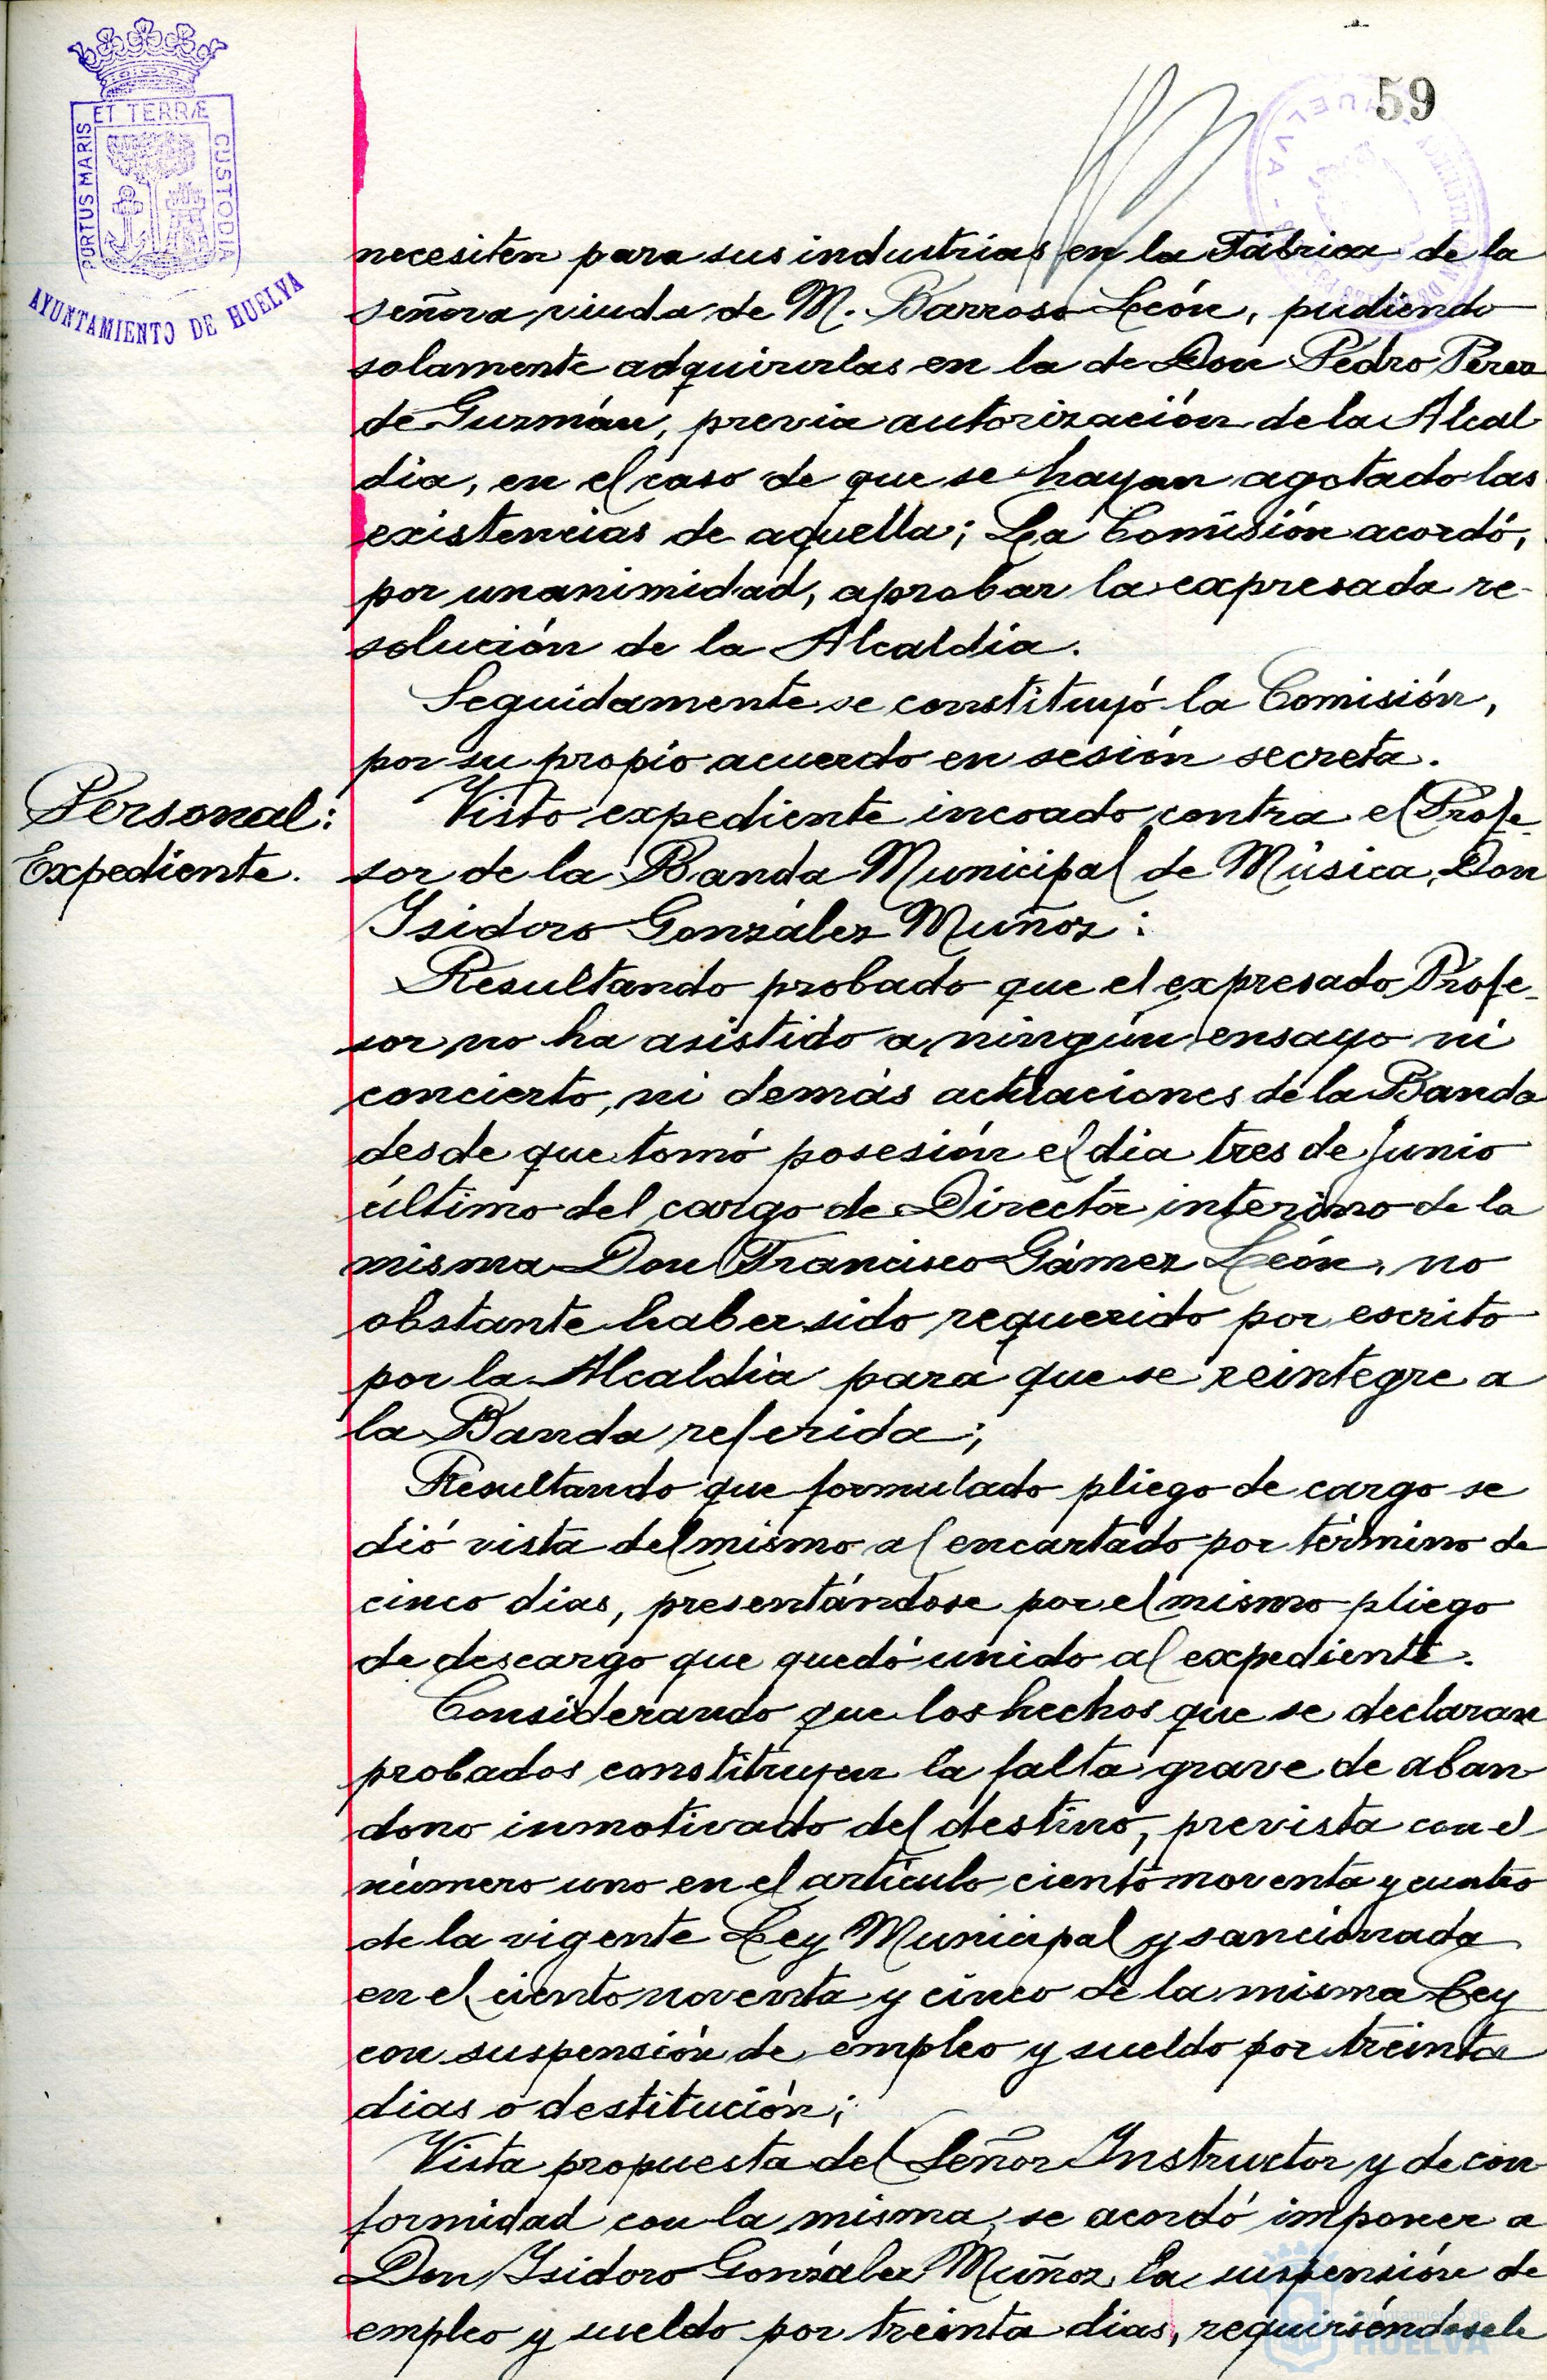 59
PORTUS MARIS ET TERRÆ CUSTODIA
AYUNTAMIENTO DE HUELVA
HUELVA
necesiten para sus industrias en la Fábrica de la
señora viuda de M. Barroso León, pudiendo
solamente adquirirlas en la de Don Pedro Perez
de Guzmán, previa autorización de la Alcal-
dia, en el caso de que se hayan agotado las
existencias de aquella; La Comisión acordó,
por unanimidad, aprobar la expresada re-
solución de la Alcaldía.
Seguidamente se constituyó la Comisión,
por su propio acuerdo en sesión secreta.
Personal:
Expediente.
Visto expediente incoado contra el Profe-
sor de la Banda Municipal de Música, Don
Isidoro González Muñoz:
Resultando probado que el expresado Profe-
sor no ha asistido a ningún ensayo ni
concierto, ni demás actuaciones de la Banda
desde que tomó posesión el dia tres de Junio
último del cargo de Director interino de la
misma Don Francisco Gámez León, no
obstante haber sido requerido por escrito
por la Alcaldía para que se reintegre a
la Banda referida;
Resultando que formulado pliego de cargo se
dió vista del mismo al encartado por término de
cinco dias, presentándose por el mismo pliego
de descargo que quedó unido al expediente.
Considerando que los hechos que se declaran
probados constituyen la falta grave de aban-
dono inmotivado del destino, prevista con el
número uno en el artículo ciento noventa y cuatro
de la vigente Ley Municipal y sancionada
en el ciento noventa y cinco de la misma Ley
con suspensión de empleo y sueldo por treinta
dias o destitución;
Vista propuesta del Señor Instructor y de con-
formidad con la misma, se acordó imponer a
Don Isidoro González Muñoz la suspensión de
empleo y sueldo por treinta dias, requiriéndosele
Ayuntamiento de
HUELVA